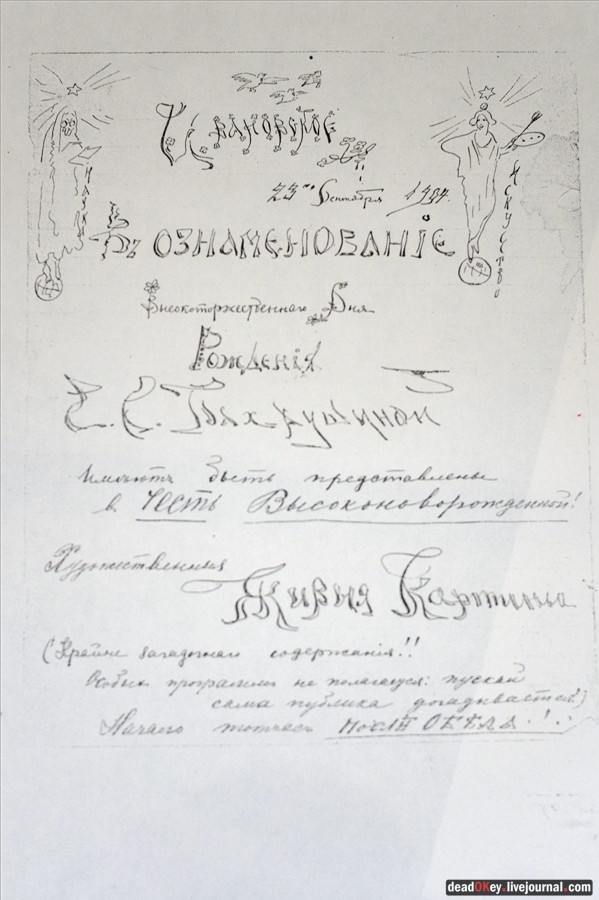 Ивановское
НАУКИ
ИСКУСТВО
23го Сентября 1904.
Въ ОЗНАМЕНОВАНІЕ
Высокоторжественнаго Дня
Рожденія
Е. С. Бахрушиной
Имѣютъ быть представлены
в Честь Высоконоворожденной!
Художественныя
Живыя Картины
(Крайне загадочнаго содержанія!!
Особыхъ программъ не полагается: пускай
сама публика догадывается!)
Начало тотчасъ послѣ обѣда.!..
deadOKey.livejournal.com